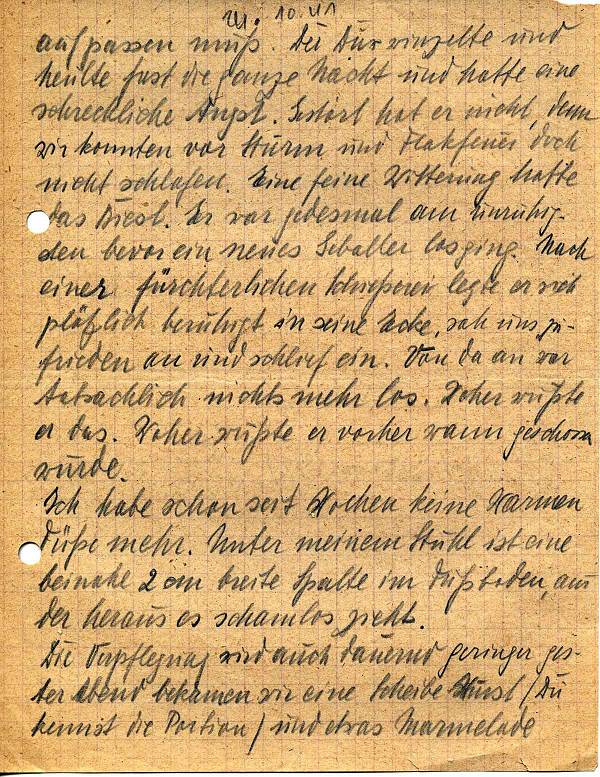 10.41
aufpassen muß. Der Dux winzelte und
heulte fast die ganze Nacht und hatte eine
schreckliche Angst. Gestört hat er nicht, denn
wir konnten vor Sturm und Flakfeuer doch
nicht schlafen. Eine feine Witterung hatte
das Biest. Er war jedesmal am unruhig-
sten bevor ein neues Geballer losging. Nach
einer fürchterlichen Schießerei legte er sich
plötzlich beruhigt in seine Ecke, sah uns zu-
frieden an und schlief ein. Von da an war
tatsächlich nichts mehr los. Woher wußte
er das. Woher wußte er vorher wann geschossen
wurde.
Ich habe schon seit Wochen keine warmen
Füße mehr. Unter meinem Stuhl ist eine
beinahe 2 cm breite Spalte im Fußboden, aus
der heraus es schamlos zieht.
Die Verpflegung wird auch dauernd geringer ges-
tern Abend bekamen wir eine Scheibe Wurst / Du
kennst die Portion / und etwas Marmelade